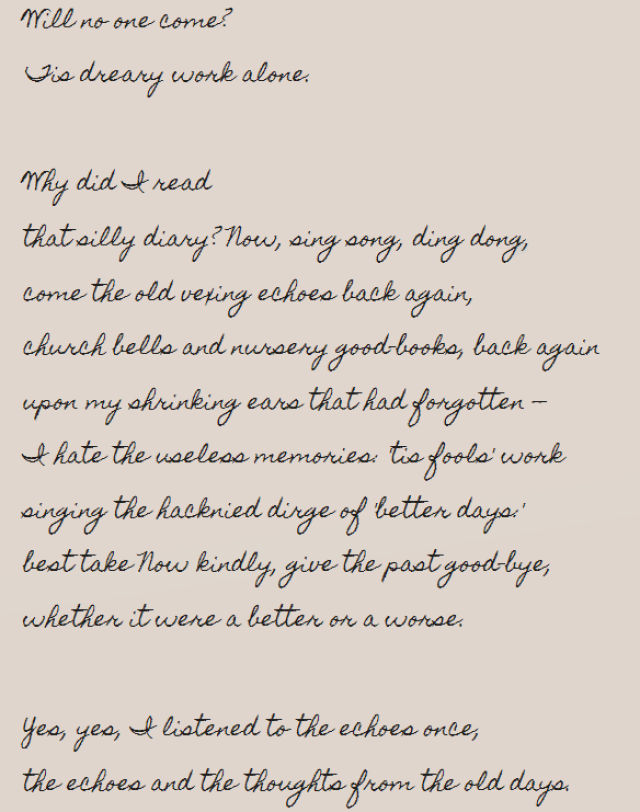 Will no one come?
'Tis dreary work alone.
Why did I read
that silly diary? Now, sing song, ding dong,
come the old vexing echoes back again,
church bells and nursery good-books, back again
upon my shrinking ears that had forgotten —
I hate the useless memories: 'tis fools' work
singing the hacknied dirge of 'better days:'
best take Now kindly, give the past good-bye,
whether it were a better or a worse.
Yes, yes, I listened to the echoes once,
the echoes and the thoughts from the old days.